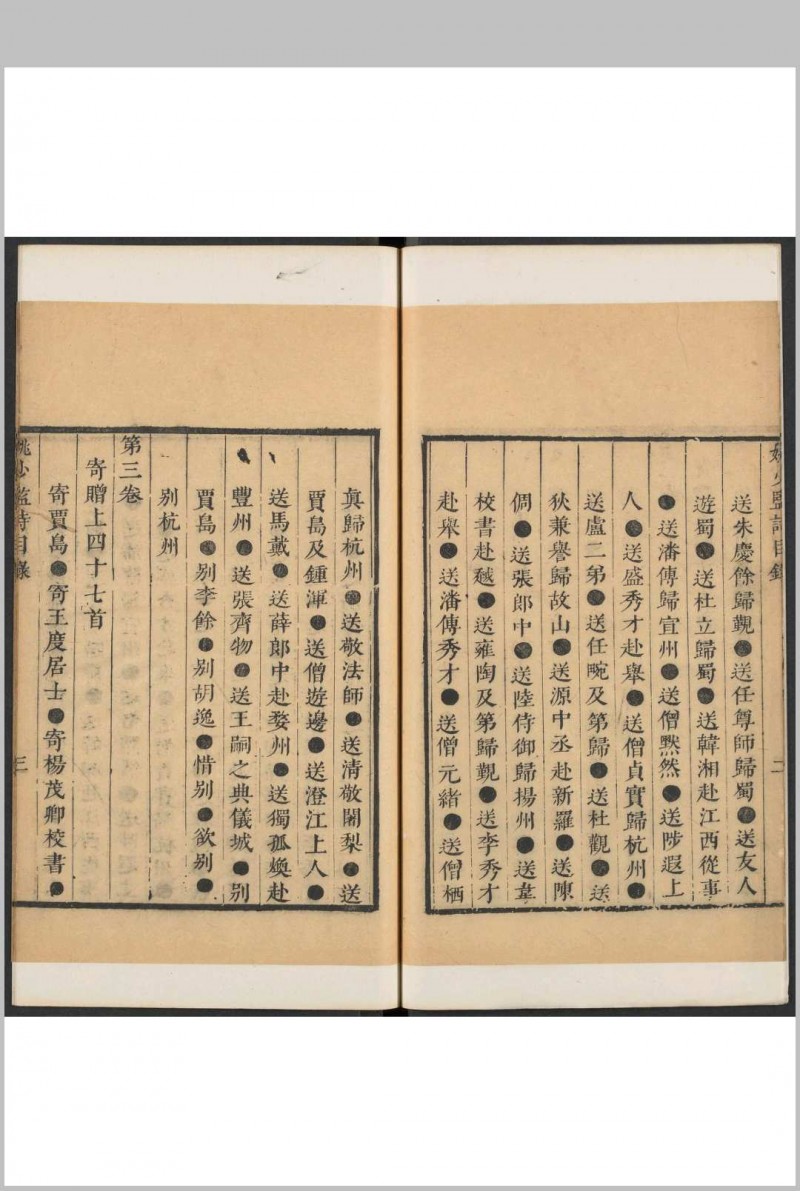 送朱慶餘歸覲●送任尊師歸蜀●送友人
遊蜀●送杜立歸蜀●送韓湘赴江西從事
●送潘傳歸宜州●送僧黙然●送陟遐上
人●送盛秀才赴舉●送僧貞實歸杭州●
送盧二弟●送任畹及第歸●送杜觀●送
狄兼謩歸故山●送源中丞赴新羅●送陳
倜●送張郎中●送陸侍御歸揚州●送韋
校書赴越●送雍陶及第歸覲●送李秀才
赴舉●送潘傳秀才●送僧元緒●送僧栖
二
眞歸杭州●送敬法師●送清敬闍梨●送
賈島及鍾渾●送僧遊邊●送澄江上人●
送馬戴●送薛郎中赴婺州●送獨孤煥赴
豐州●送張齊物●送王嗣之典儀城●别
賈島●别李餘●别胡逸●惜别●欲别●
别杭州
第三卷
寄贈上四十七首
寄賈島●寄王度居士●寄楊茂卿校書●
姚少監詩目錄
三